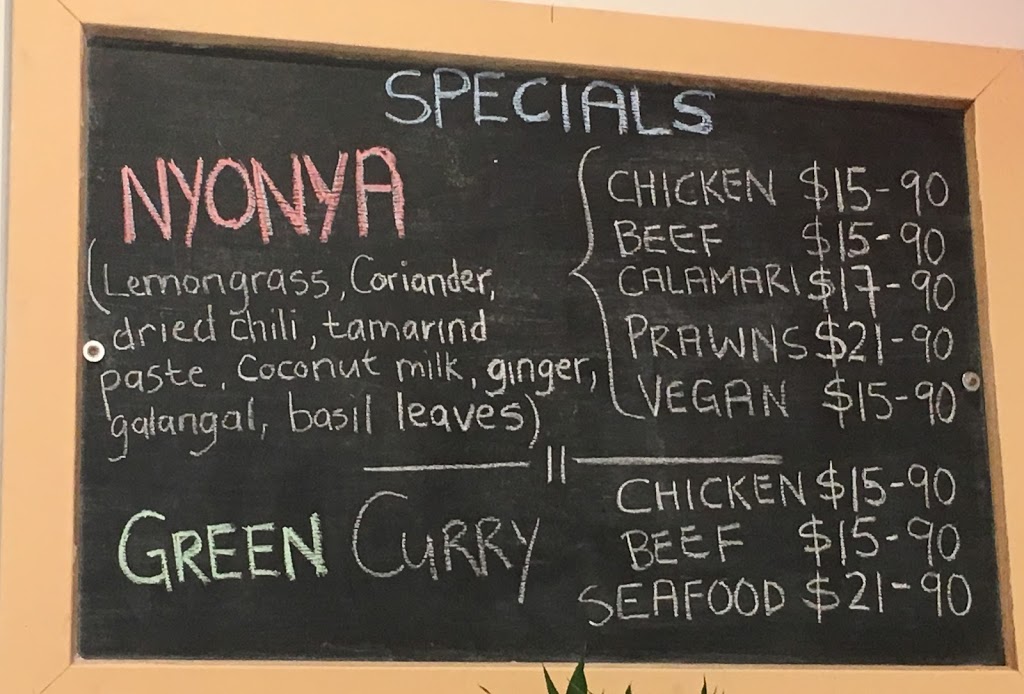 SPECIALS
NYONYA
(Lemongrass, Coriander,
dried chili, tamarind
paste, Coconut milk, ginger,
galangal, basil leaves)
CHICKEN $15-90
BEEF $15-90
CALAMARI $17-90
PRAWNS $21-90
VEGAN $15-90
GREEN CURRY
CHICKEN $15-90
BEEF $15-90
SEAFOOD $21-90